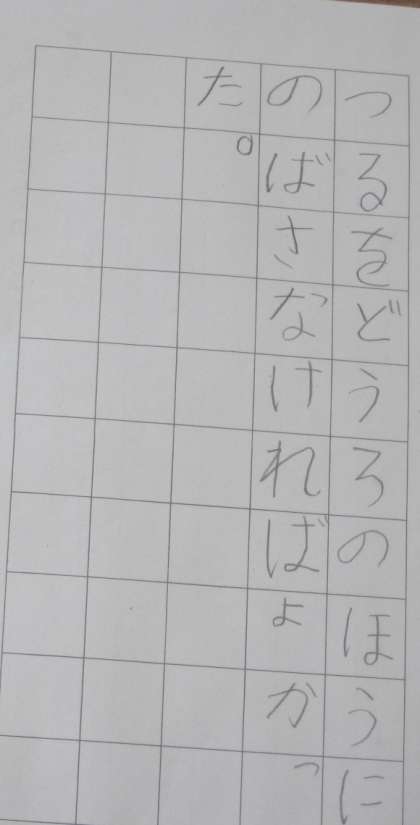 つるをどうろのほうに
のばさなければよかっ
た。